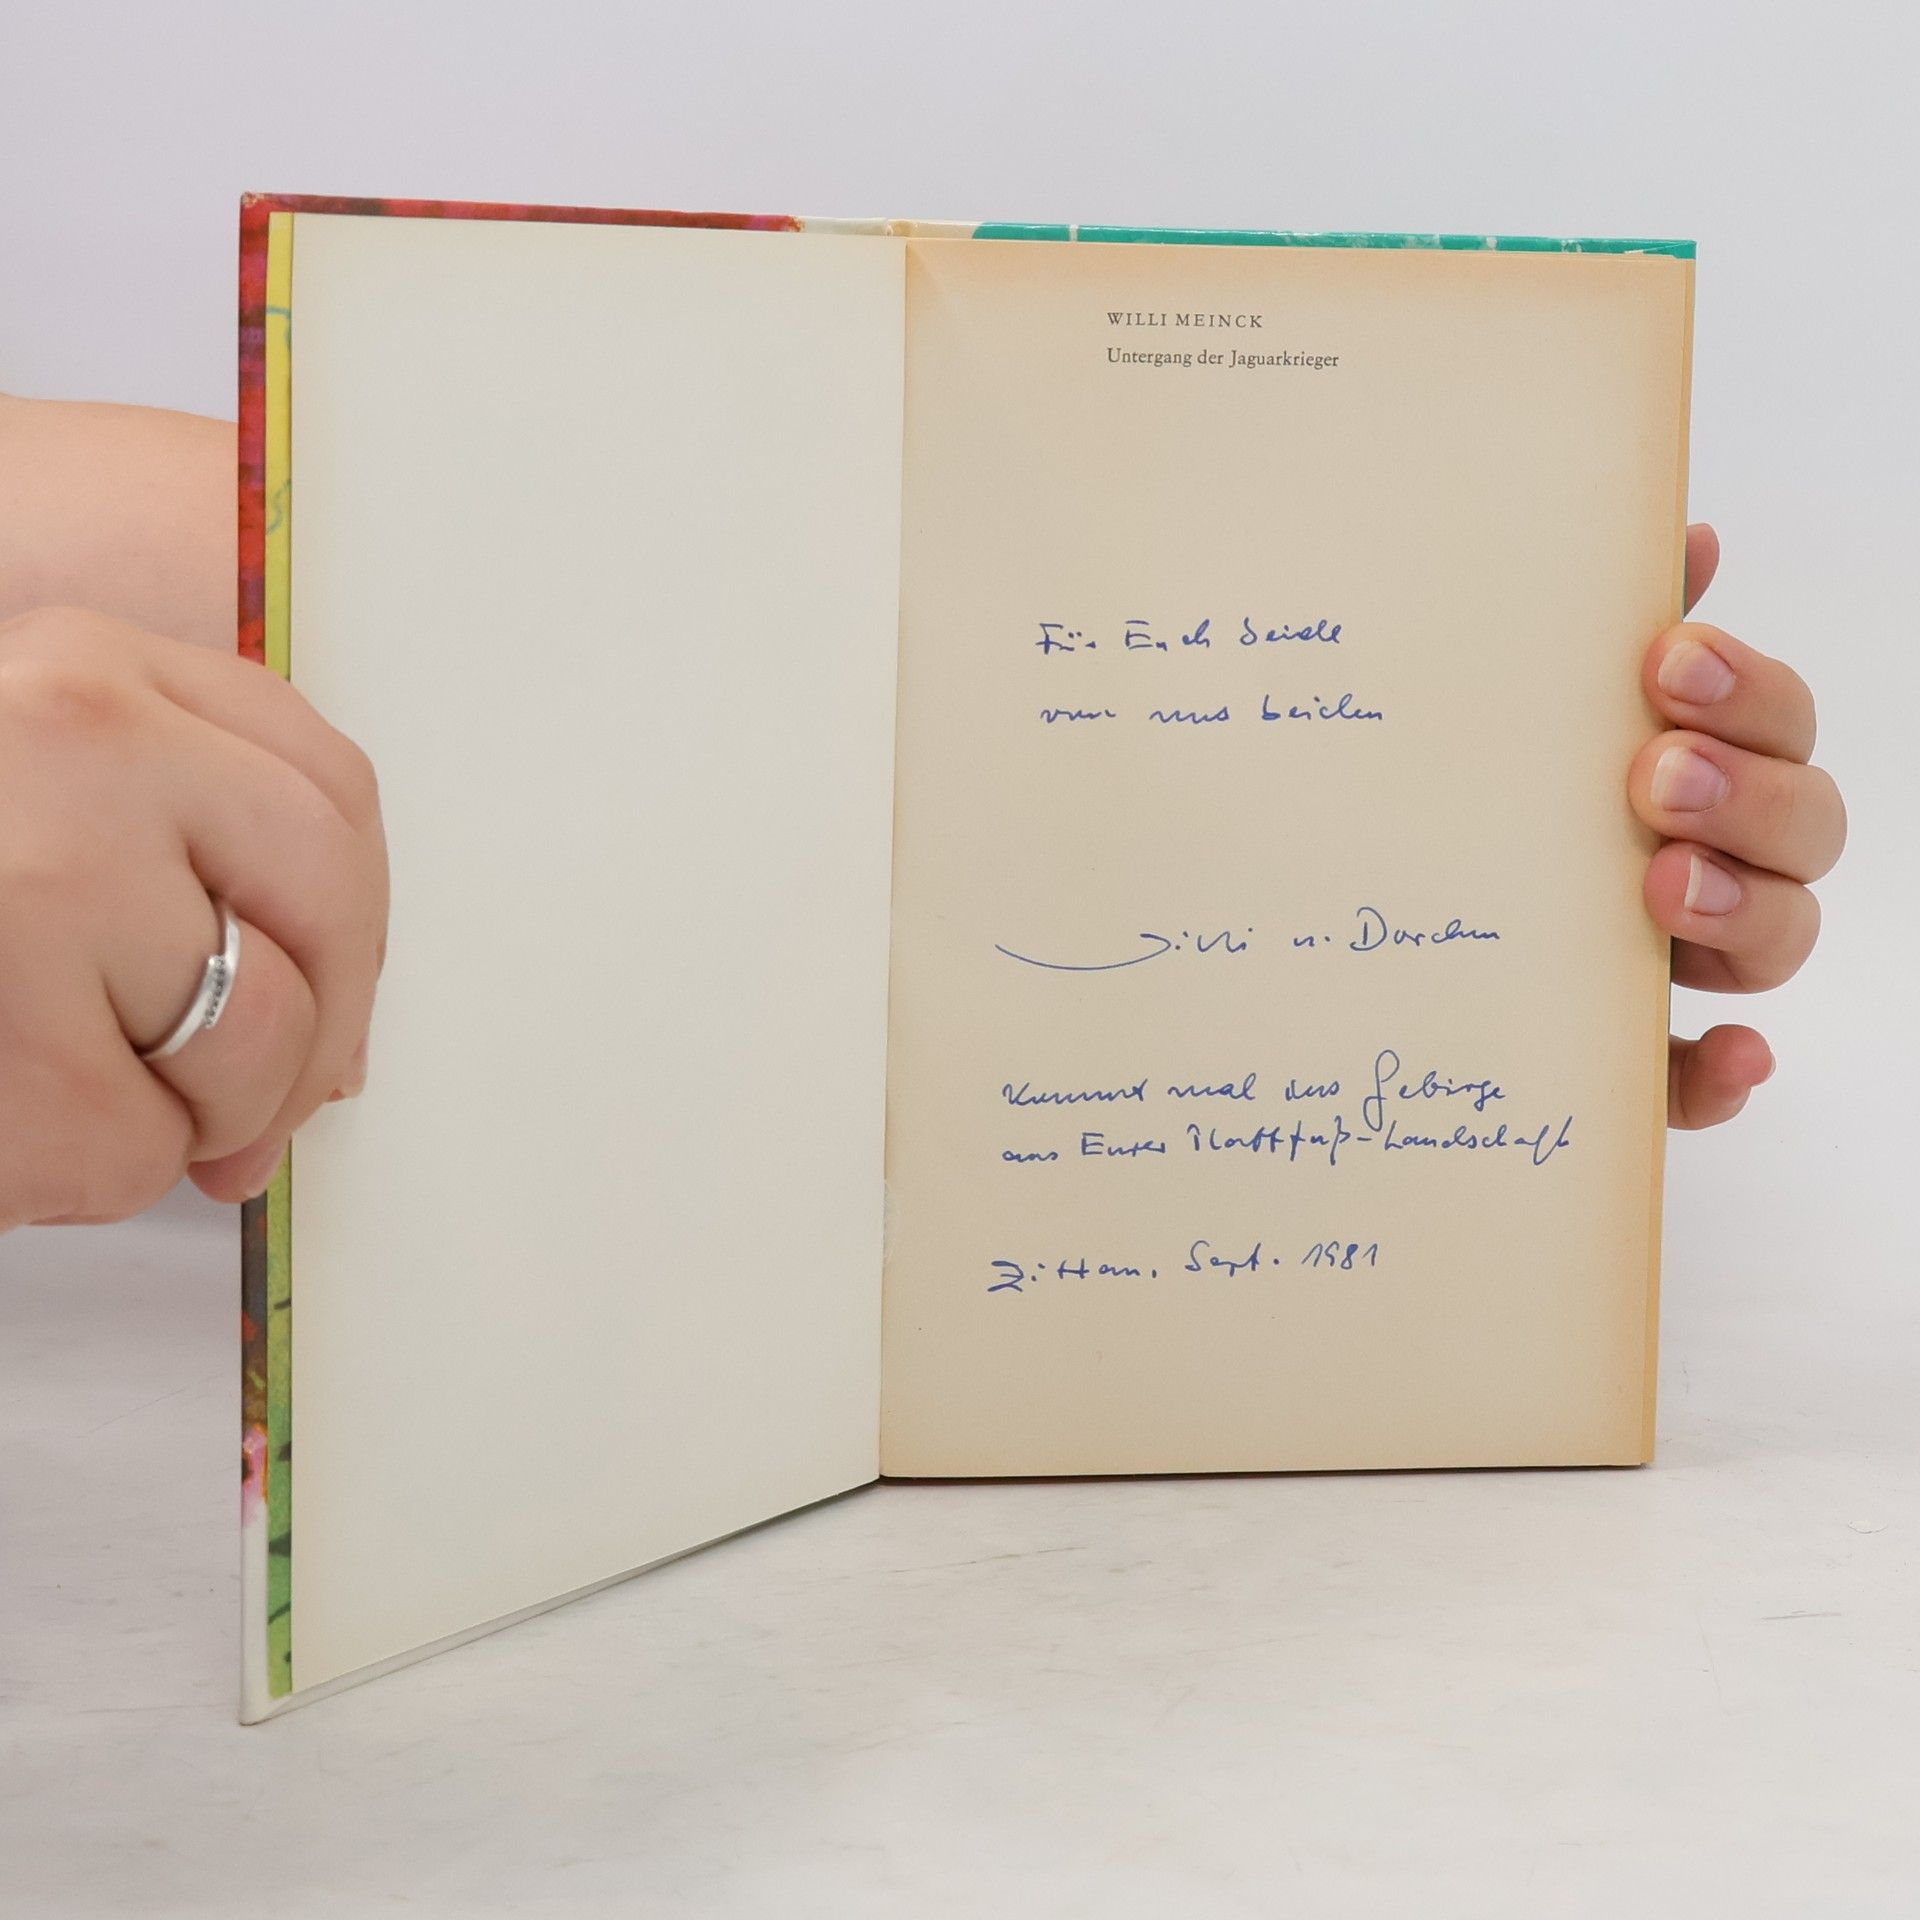 WILLI MEINCK
Untergang der Jaguarkrieger
Für Euch beide
von uns beiden
Willi u. Dorchen
Kommt mal ins Gebirge
aus Eurer Plattfuß-Landschaft
Zittau, Sept. 1981